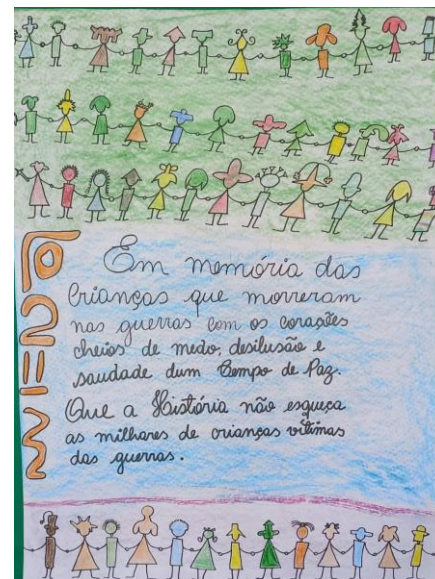 POEMA
Em memória das
Crianças que morreram
nas guerras com os corações
cheios de medo, desilusão e
saudade dum Tempo de Paz.
Que a História não esqueça
as milhares de crianças vítimas
das guerras.